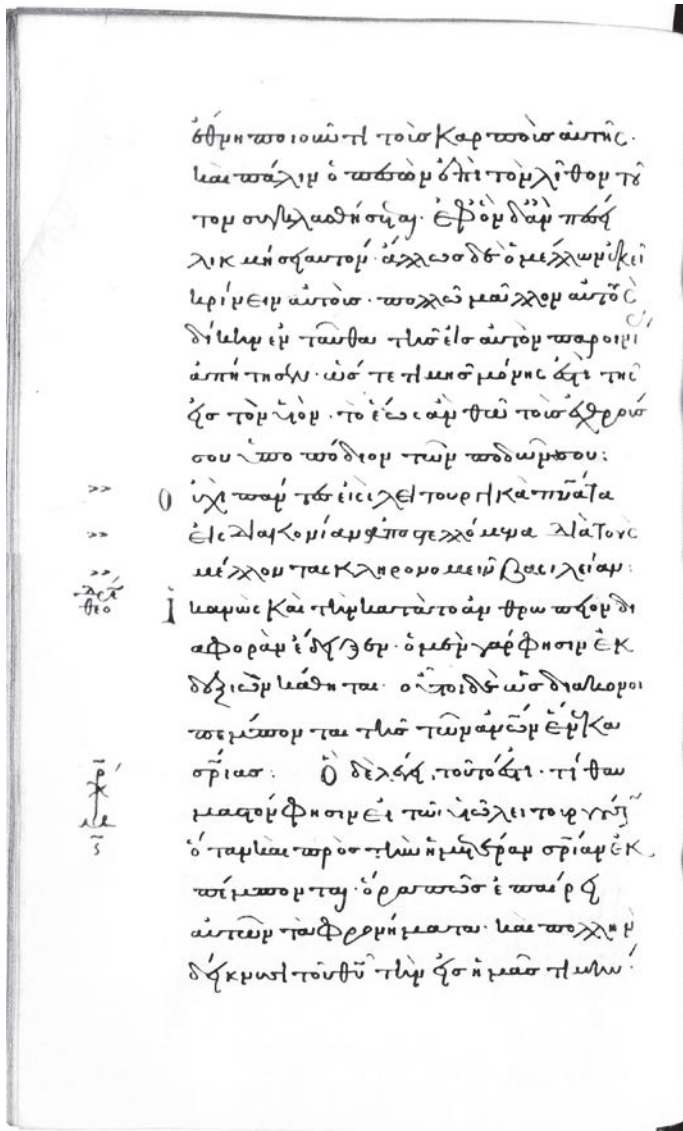 ἔθνη ποιοῦντι τοὺς καρποὺς αὐτῆς·
καὶ πάλιν ὁ πεσὼν ἐπὶ τὸν λίθον τοῦ
τον συνκλασθήσεται· ἐφ' ὃν δ' ἂν πέσῃ
λικμήσει αὐτόν· ἄλλως δὲ ὁ μέλλων ἐκεῖ
κρίνειν αὐτοὺς· πολλῷ μᾶλλον αὐτοὺς
δίκην ἐνταῦθα τῆς εἰς αὐτὸν παροινί
ἀπῄτησεν· ὥστε τιμῆς μόνης ἐστὶ τῆς
εἰς τὸν υἱὸν· τὸ ἕως ἂν θῶ τοὺς ἐχθροὺς
σου ὑποπόδιον τῶν ποδῶν σου:
>> Οὐχὶ πάντες εἰσὶ λειτουργικὰ πν̅α̅τα
>> εἰς διακονίαν ἀποστελλόμενα διὰ τοὺς
>> μέλλοντας κληρονομεῖν βασιλείαν:
θεο Ἱκανῶς καὶ τὴν κατὰ τὸ ἀνθρώπειον δι
αφορὰν ἔδειξεν· ὁ μὲν γάρ φησιν ἐκ
δεξιῶν κάθηται· οὗτοι δὲ ὡς διάκονοι
πέμπονται τῆς τῶν ἀν̅ω̅ν ἕνεκα
σ̅ρ̅ίας: Ὃ δὲ λέγει, τοῦτό ἐστι· τί θαυ
μαστόν φησιν εἰ τῶι υἱῶ λειτουργοῦσιν
ὅταν καὶ πρὸς τὴν ἡμετέραν σ̅ρ̅ίαν ἐκ
πέμπονται· ὅρα πῶς ἐπαίρει
αὐτῶν τὰ φρονήματα· καὶ πολλὴν
δείκνυσι τοῦ θ̅υ̅ τὴν εἰς ἡμᾶς τιμήν·